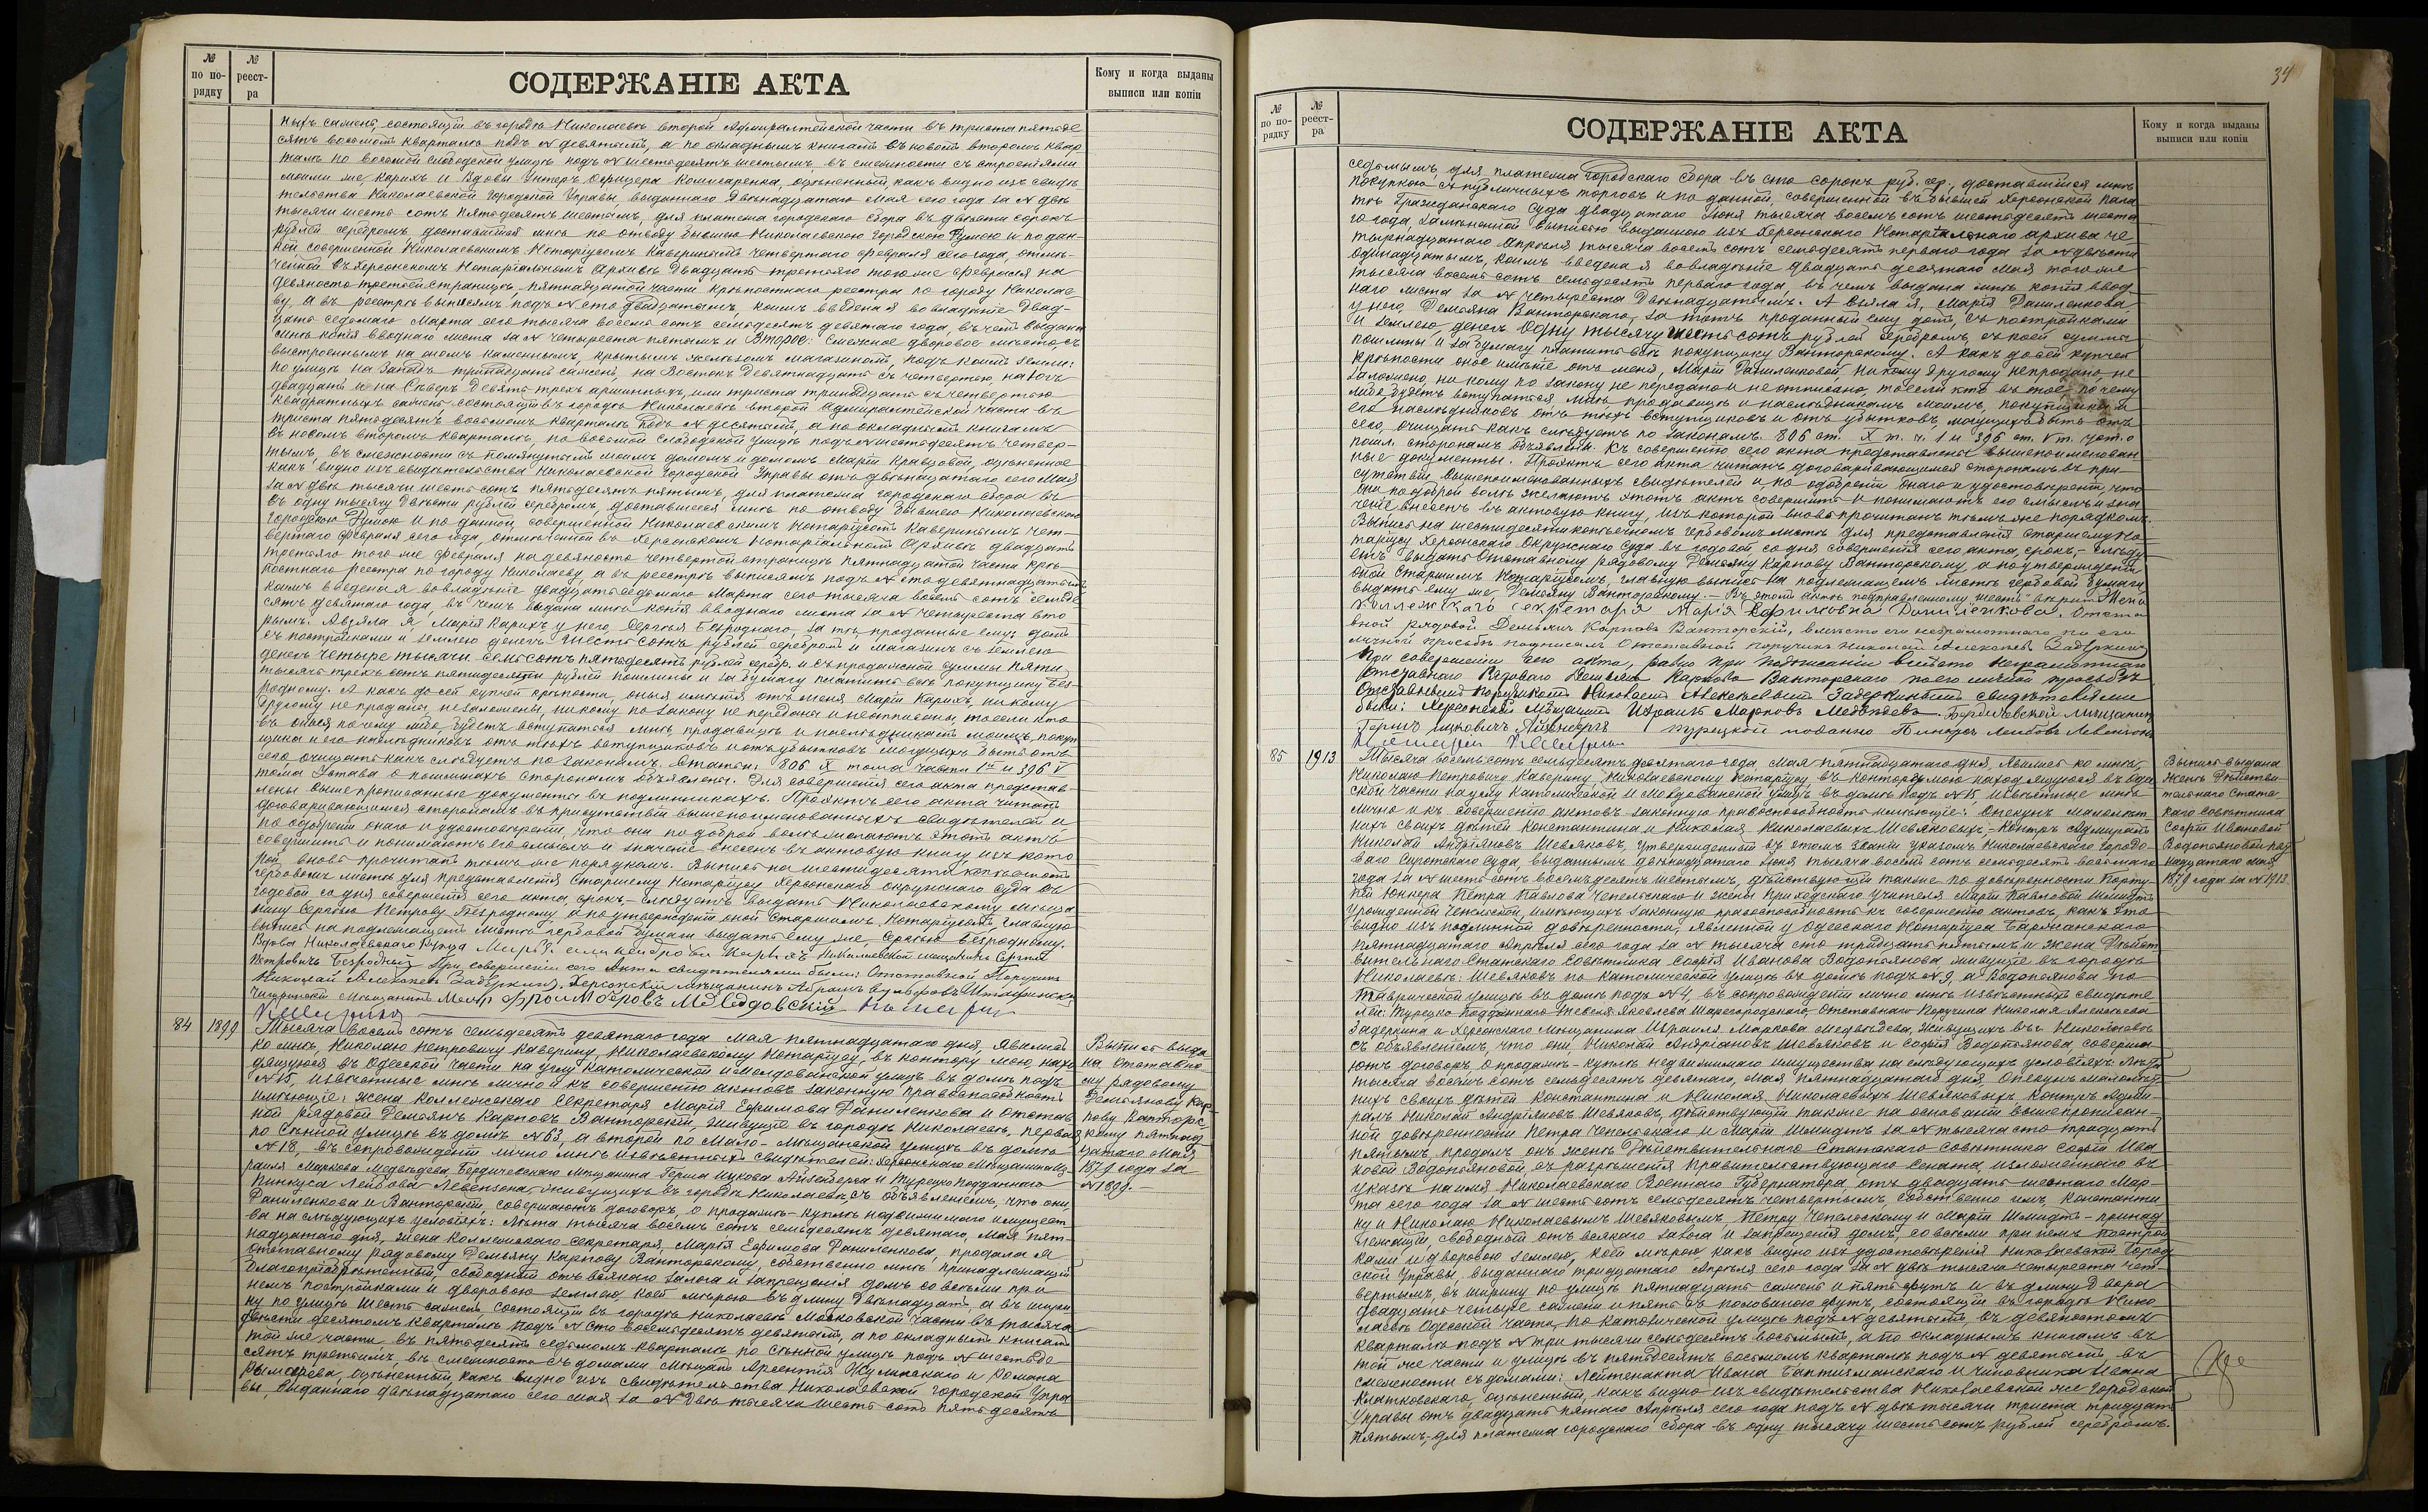 № по по-рядку
№ реест-ра
СОДЕРЖАНІЕ АКТА
Кому и когда выданы выписи или копіи
ныхъ сажень, состоящій въ городѣ Николаевѣ второй Адмиралтейской части въ триста пятьде
сятъ восьмомъ кварталѣ подъ № девятымъ, а по окладнымъ книгамъ въ новомъ второмъ квар
талѣ по восьмой Слободской улицѣ подъ № шестьдесятъ шестымъ, въ смежности съ строеніями
моими же, Карихъ и вдовы Унтеръ Офицера Комисаренка, оцѣненный, какъ видно изъ свидѣ
тельства Николаевской Городской Управы, выданнаго двѣнадцатаго Мая сего года за № двѣ
тысячи шесть сотъ пятьдесятъ шестымъ, для платежа городскаго сбора въ двѣсти сорокъ
рублей серебромъ, доставшійся мнѣ по отводу бывшею Николаевскою Городскою Думою и по дан-
ной совершенной Николаевскимъ Нотаріусомъ Каверинымъ четвертаго февраля сего года, отмѣ-
ченной въ Херсонскомъ Нотаріальномъ Архивѣ двадцать третьяго того же февраля на
девяносто третьей страницѣ, пятнадцатой части крѣпостнаго реестра по городу Николае
ву, а въ реестрѣ выписямъ подъ № сто двадцатымъ, коимъ введена я во владѣніе двад-
цать седьмаго Марта сего тысяча восемь сотъ семьдесятъ девятаго года, въ чемъ выдана
мнѣ копія вводнаго листа за № четыреста пятымъ и Второе: Смежное дворовое мѣсто, съ
выстроеннымъ на ономъ каменнымъ, крытымъ желѣзомъ магазиномъ, подъ коимъ земли:
по улицѣ на Западъ тринадцать сажень, на Востокъ девятнадцать съ четвертью, на Югъ
двадцать и на Сѣверъ девять трехъ аршинныхъ, или триста тринадцать съ четвертью
квадратныхъ сажень состоящій въ городѣ Николаевѣ второй Адмиралтейской части въ
триста пятьдесятъ восьмомъ кварталѣ подъ № десятымъ, а по окладнымъ книгамъ
въ новомъ второмъ кварталѣ, по восьмой Слободской улицѣ подъ № шестьдесятъ четвер-
тымъ, въ смежности съ помянутымъ моимъ домомъ и домомъ Маріи Кравцовой, оцѣненное
какъ видно изъ свидѣтельства Николаевской Городской Управы отъ двѣнадцатаго сего Мая
за № двѣ тысячи шесть сотъ пятьдесятъ пятымъ, для платежа городскаго сбора въ
въ одну тысячу двѣсти рублей серебромъ, доставшееся мнѣ по отводу бывшею Николаевскою
Городскою Думою и по данной, совершенной Николаевскимъ Нотаріусомъ Каверинымъ чет-
вертаго Февраля сего года, отмѣченной въ Херсонскомъ Нотаріальномъ Архивѣ двадцать
третьяго того же Февраля на девяносто четвертой страницѣ пятнадцатой части крѣ-
постнаго реестра по городу Николаеву, а въ реестрѣ выписямъ подъ № сто девятнадцатымъ
коимъ введена я во владѣніе двадцать седьмаго Марта сего тысяча восемь сотъ семьде
сятъ девятаго года, въ чемъ выдана мнѣ копія вводнаго листа за № четыреста вто
рымъ. А взяла я, Марія Карихъ у него, Сергѣя Безроднаго, за тѣ, проданные ему: домъ
съ постройками и землею денегъ шесть сотъ рублей серебромъ и магазинъ съ землею
денегъ четыре тысячи семь сотъ пятьдесятъ рублей серебр. и съ продажной суммы пяти
тысячъ трехъ сотъ пятидесяти рублей пошлины и за бумагу платить всѣ покупщику Без-
родному. А какъ до сей купчей крѣпости, оныя имѣнія отъ меня Маріи Карихъ, никому
другому не проданы, не заложены, никому по закону не переданы и не отписаны, то если кто
въ оныя почему либо, будетъ вступаться мнѣ, продавицѣ и наслѣдникамъ моимъ, покуп
щика и его наслѣдниковъ отъ тѣхъ вступщиковъ и отъ убытковъ могущихъ быть отъ
сего, очищать какъ слѣдуетъ по законамъ. Статьи: 806 X тома части 1й и 396 V
тома Устава о пошлинахъ сторонамъ объявлены. Для совершенія сего акта представ-
лены выше прописанные документы въ подлинникахъ. Проэктъ сего акта читанъ
договаривающимся сторонамъ въ присутствіи вышепоименованныхъ свидѣтелей и
по одобреніи онаго и удостовѣреніи, что они по доброй волѣ желаютъ этотъ актъ
совершить и понимаютъ его смыслъ и значеніе внесенъ въ актовую книгу изъ кото
рой вновь прочитанъ тѣмъ же порядкомъ. Выпись на шестидесяти копѣечномъ
гербовомъ листѣ для представленія Старшему Нотаріусу Херсонскаго окружнаго Суда въ
годовой со дня совершенія сего акта, срокъ, слѣдуетъ выдать Николаевскому мѣща
нину Сергѣю Петрову Безродному а по утвержденіи оной Старшимъ Нотаріусомъ, главную
выпись на подлежащемъ листѣ гербовой бумаги выдать ему же, Сергѣю Безродному.
Вдова Николаевскаго Купца Марія Карихъ Николаевскій мѣщанинъ Сергѣй
Петровичъ Безродный При совершеніи сего Акта свидѣтелями были: Отставной Поручикъ
Николай Алексѣевъ Задеркинъ, Херсонскій мѣщанинъ Абрамъ Вульфовъ
мѣщанинъ Меиръ Медведовскій Нотаріусъ
Каверинъ
84
1899
Тысяча восемь сотъ семьдесятъ девятаго года Мая пятнадцатаго дня, явились
ко мнѣ, Николаю Петровичу Каверину, Николаевскому Нотаріусу, въ контору мою, нахо
дящуюся въ Одесской части на углу Католической и Молдованской улицъ въ домѣ подъ
№ 15, извѣстные мнѣ лично и къ совершенію актовъ законную правоспособность
имѣющіе: жена Коллежскаго Секретаря Марія Ефимова Даниленкова и Отстав
ной рядовой Демьянъ Карповъ Ванторскій, живущіе въ городѣ Николаевѣ, первая
по Сѣнной улицѣ въ домѣ № 63, а второй по Мало-Мѣщанской улицѣ въ домѣ
№ 18, въ сопровожденіи лично мнѣ извѣстныхъ свидѣтелей: Херсонскаго мѣщанина Из
раиля Маркова Медвѣдева, Бердичевскаго мѣщанина Герша Ицкова Айзенберга и Турецко подданнаго
Пинкуса Лейбова Левензона, живущихъ въ городѣ Николаевѣ, съ объявленіемъ, что они,
Даниленкова и Ванторскій, совершаютъ договоръ, о продажѣ-куплѣ недвижимаго имущест
ва на слѣдующихъ условіяхъ: Лѣта тысяча восемь сотъ семьдесятъ девятаго, Мая пят-
надцатаго дня, жена Коллежскаго Секретаря, Марія Ефимова Даниленкова, продала я
Отставному рядовому Демьяну Карпову Ванторскому, собственно мнѣ принадлежащій
благопріобрѣтенный, свободный отъ всякаго залога и запрещенія домъ со всѣми при
немъ постройками и дворовою землею, коей мѣрою въ длину двѣнадцать, а въ шири
ну по улицѣ шесть сажень, состоящій въ городѣ Николаевѣ Московской части въ тысяча
двѣсти десятомъ кварталѣ подъ № сто восемьдесятъ девятымъ, а по окладнымъ книгамъ
той же части въ пятьдесятъ седьмомъ кварталѣ по Сѣнной улицѣ подъ № шестьде
сятъ третьимъ, въ смежности съ домами мѣщанъ Арсентія Жулинскаго и Романа
Рымарева, оцѣненный, какъ видно изъ свидѣтельства Николаевской городской Упра
вы, выданнаго двѣнадцатаго сего Мая за № двѣ тысячи шесть сотъ пятьдесятъ
Выпись выда
на Отставно-
му рядовому
Демьянову Кар
пову Ванторс-
кому пятнад-
цатаго Мая
1879 года за
№ 1899.
34
№ по по-рядку
№ реест-ра
СОДЕРЖАНІЕ АКТА
Кому и когда выданы выписи или копіи
седьмымъ, для платежа городскаго сбора въ сто сорокъ руб. сер., доставшійся мнѣ
покупкою съ публичныхъ торговъ и по данной, совершенной въ бывшей Херсонской Пала
тѣ Гражданскаго Суда двадцатаго Іюня тысяча восемь сотъ шестьдесятъ шеста
го года, замѣненной выписью выданною изъ Херсонскаго Нотаріальнаго архива че
тырнадцатаго Апрѣля тысяча восемь сотъ семьдесятъ перваго года за № двѣсти
одинадцатымъ, коимъ введена я во владѣніе двадцать девятаго Мая того же
тысяча восемь сотъ семьдесятъ перваго года, въ чемъ выдана мнѣ копія ввод
наго листа за № четыреста двѣнадцатымъ. А взяла я, Марія Даниленкова
у него, Демьяна Ванторскаго, за тотъ проданный ему домъ, съ постройками
и землею, денегъ одну тысячу шесть сотъ рублей серебромъ, съ коей суммы
пошлины и за бумагу платить всѣ покупщику Ванторскому. А какъ до сей купчей
крѣпости оное имѣніе отъ меня, Маріи Даниленковой, никому другому не продано, не
заложено, никому по закону не передано и не отписано, то если кто въ тое, почему
либо будетъ вступаться мнѣ продавицѣ и наслѣдникамъ моимъ, покупщика и
его наслѣдниковъ отъ тѣхъ вступщиковъ и отъ убытковъ, могущихъ быть отъ
сего, очищать какъ слѣдуетъ по законамъ. 806 ст. X т. ч. 1 и 396 ст. V т. уст. о
пошл. сторонамъ объявлены. Къ совершенію сего акта представлены вышепоименован
ные документы. Проэктъ сего акта читанъ договаривающимся сторонамъ въ при-
сутствіи вышепоименованныхъ свидѣтелей и, по одобреніи онаго и удостовѣреніи, что
они по доброй волѣ желаютъ этотъ актъ совершить и понимаютъ его смыслъ и зна
ченіе внесенъ въ актовую книгу, изъ которой вновь прочитанъ тѣмъ же порядкомъ.
Выпись на шестидесяти копѣечномъ гербовомъ листѣ для представленія Старшему Но-
таріусу Херсонскаго Окружнаго Суда въ годовой со дня совершенія сего акта, срокъ, слѣду
етъ выдать Отставному рядовому Демьяну Карпову Ванторскому, а по утвержденіи
оной Старшимъ Нотаріусомъ, главную выпись на подлежащемъ листѣ гербовой бумаги
выдать ему же, Демьяну Ванторскому. — Въ этомъ актѣ подправленному „шесть“ вѣрить. Жена
Коллежскаго секретаря Марія Ефимовна Даниленкова. Отста
вной рядовой Демьянъ Карповъ Ванторскій, вмѣсто его неграмотнаго по его
личной просьбѣ подписалъ Отставной поручикъ Николай Алексѣевъ Задеркинъ
При совершеніи сего акта, равно при подписаніи вмѣсто неграмотнаго
Отставнаго Рядоваго Демьяна Карпова Ванторскаго по его личной просьбѣ
Отставнымъ Поручикомъ Николаемъ Алексѣевымъ Задеркинымъ свидѣтелями
были: Херсонскій Мѣщанинъ Израиль Марковъ Медвѣдевъ. Бердичевскій мѣщанинъ
Гершъ Ицковичъ Айзенбергъ Турецкой подданно Пинкусъ Лейбовъ Левензонъ
Нотаріусъ Каверинъ
85
1913
Тысяча восемь сотъ семьдесятъ девятаго года, Мая пятнадцатаго дня, явились ко мнѣ,
Николаю Петровичу Каверину, Николаевскому Нотаріусу, въ контору мою находящуюся въ Одес
ской части на углу Католической и Молдованской улицъ въ домѣ подъ № 15, извѣстные мнѣ
лично и къ совершенію актовъ законную правоспособность имѣющіе: Опекунъ малолѣт
нихъ своихъ дѣтей Константина и Николая Николаевыхъ Шевяковыхъ,- Контръ Адмиралъ
Николай Андріяновъ Шевяковъ, утвержденный въ этомъ званіи указомъ Николаевскаго Городо-
ваго Сиротскаго Суда, выданнымъ двѣнадцатаго Іюня тысяча восемь сотъ семьдесятъ восьмаго
года за № шесть сотъ восемьдесятъ шестымъ, дѣйствующій также по довѣренности Порту
пей Юнкера Петра Павлова Чепельскаго и жены Приходскаго Учителя Маріи Павловой Шмидтъ
Урожденной Чепельской, имѣющихъ законную правоспособность къ совершенію актовъ, какъ это
видно изъ подлинной довѣренности, явленной у Одесскаго Нотаріуса Баржанскаго
пятнадцатаго Апрѣля сего года за № тысяча сто тридцать пятымъ и Жена Дѣйст
вительнаго Статскаго Совѣтника Софія Иванова Водопьянова живущіе въ городѣ
Николаевѣ: Шевяковъ по Католической улицѣ въ домѣ подъ № 9, а Водопьянова по
Таврической улицѣ въ домѣ подъ № 4, въ сопровожденіи лично мнѣ извѣстныхъ свидѣте
лей: Турецко подданнаго Тевеля Яковлева Шаргородскаго, отставнаго Поручика Николая Алексѣева
Задеркина и Херсонскаго Мѣщанина Израиля Маркова Медвѣдева, живущихъ въ г. Николаевѣ
съ объявленіемъ, что они, Николай Андріановъ Шевяковъ и Софія Водопьянова, соверша
ютъ договоръ, о продажѣ-куплѣ недвижимаго имущества на слѣдующихъ условіяхъ: Лѣта
тысяча восемь сотъ семьдесятъ девятаго, Мая пятнадцатаго дня, Опекунъ малолѣт
нихъ своихъ дѣтей Константина и Николая Николаевыхъ Шевяковыхъ Контръ Адми-
ралъ Николай Андріяновъ Шевяковъ, дѣйствующій также на основаніи вышепрописан-
ной довѣренности Петра Чепельскаго и Маріи Шмидтъ за № тысяча сто тридцать
пятымъ, продалъ онъ женѣ Дѣйствительнаго Статскаго Совѣтника Софіи Ива
новой Водопьяновой, съ разрѣшенія Правительствующаго Сената, изложеннаго въ
указѣ на имя Николаевскаго Военнаго Губернатора отъ двадцать шестаго Мар-
та сего года за № шесть сотъ семьдесятъ четвертымъ, собственно имъ Константи
ну и Николаю Николаевымъ Шевяковымъ, Петру Чепельскому и Маріи Шмидтъ - принад
лежащій свободный отъ всякаго залога и запрещенія домъ, со всѣми при немъ построй
ками и дворовою землею, коей мѣрою, какъ видно изъ удостовѣренія Николаевской Город
ской Управы, выданнаго тридцатаго Апрѣля сего года за № двѣ тысячи четыреста чет-
вертымъ, въ ширину по улицѣ пятнадцать сажень и пять футъ и въ длину двора
двадцать четыре сажени и пять съ половиною футъ, состоящій въ городѣ Нико
лаевѣ Одесской части, по Католической улицѣ подъ № девятымъ, въ девяностомъ
кварталѣ подъ № три тысячи семьдесятъ восьмымъ, а по окладнымъ книгамъ въ
той же части и улицѣ въ пятьдесятъ восьмомъ кварталѣ подъ № девятымъ, въ
смежности съ домами: Лейтенанта Ивана Баптизманскаго и чиновника Ивана
Квятковскаго, оцѣненный, какъ видно изъ свидѣтельства Николаевской же Городской
Управы отъ двадцать пятаго Апрѣля сего года подъ № двѣ тысячи триста тридцать
пятымъ, для платежа городскаго сбора въ одну тысячу шесть сотъ рублей серебромъ.
Выпись выдана
Женѣ Дѣйстви-
тельнаго Статс-
каго Совѣтника
Софіи Ивановой
Водопьяновой пят
надцатаго мая
1879 года за № 1913.